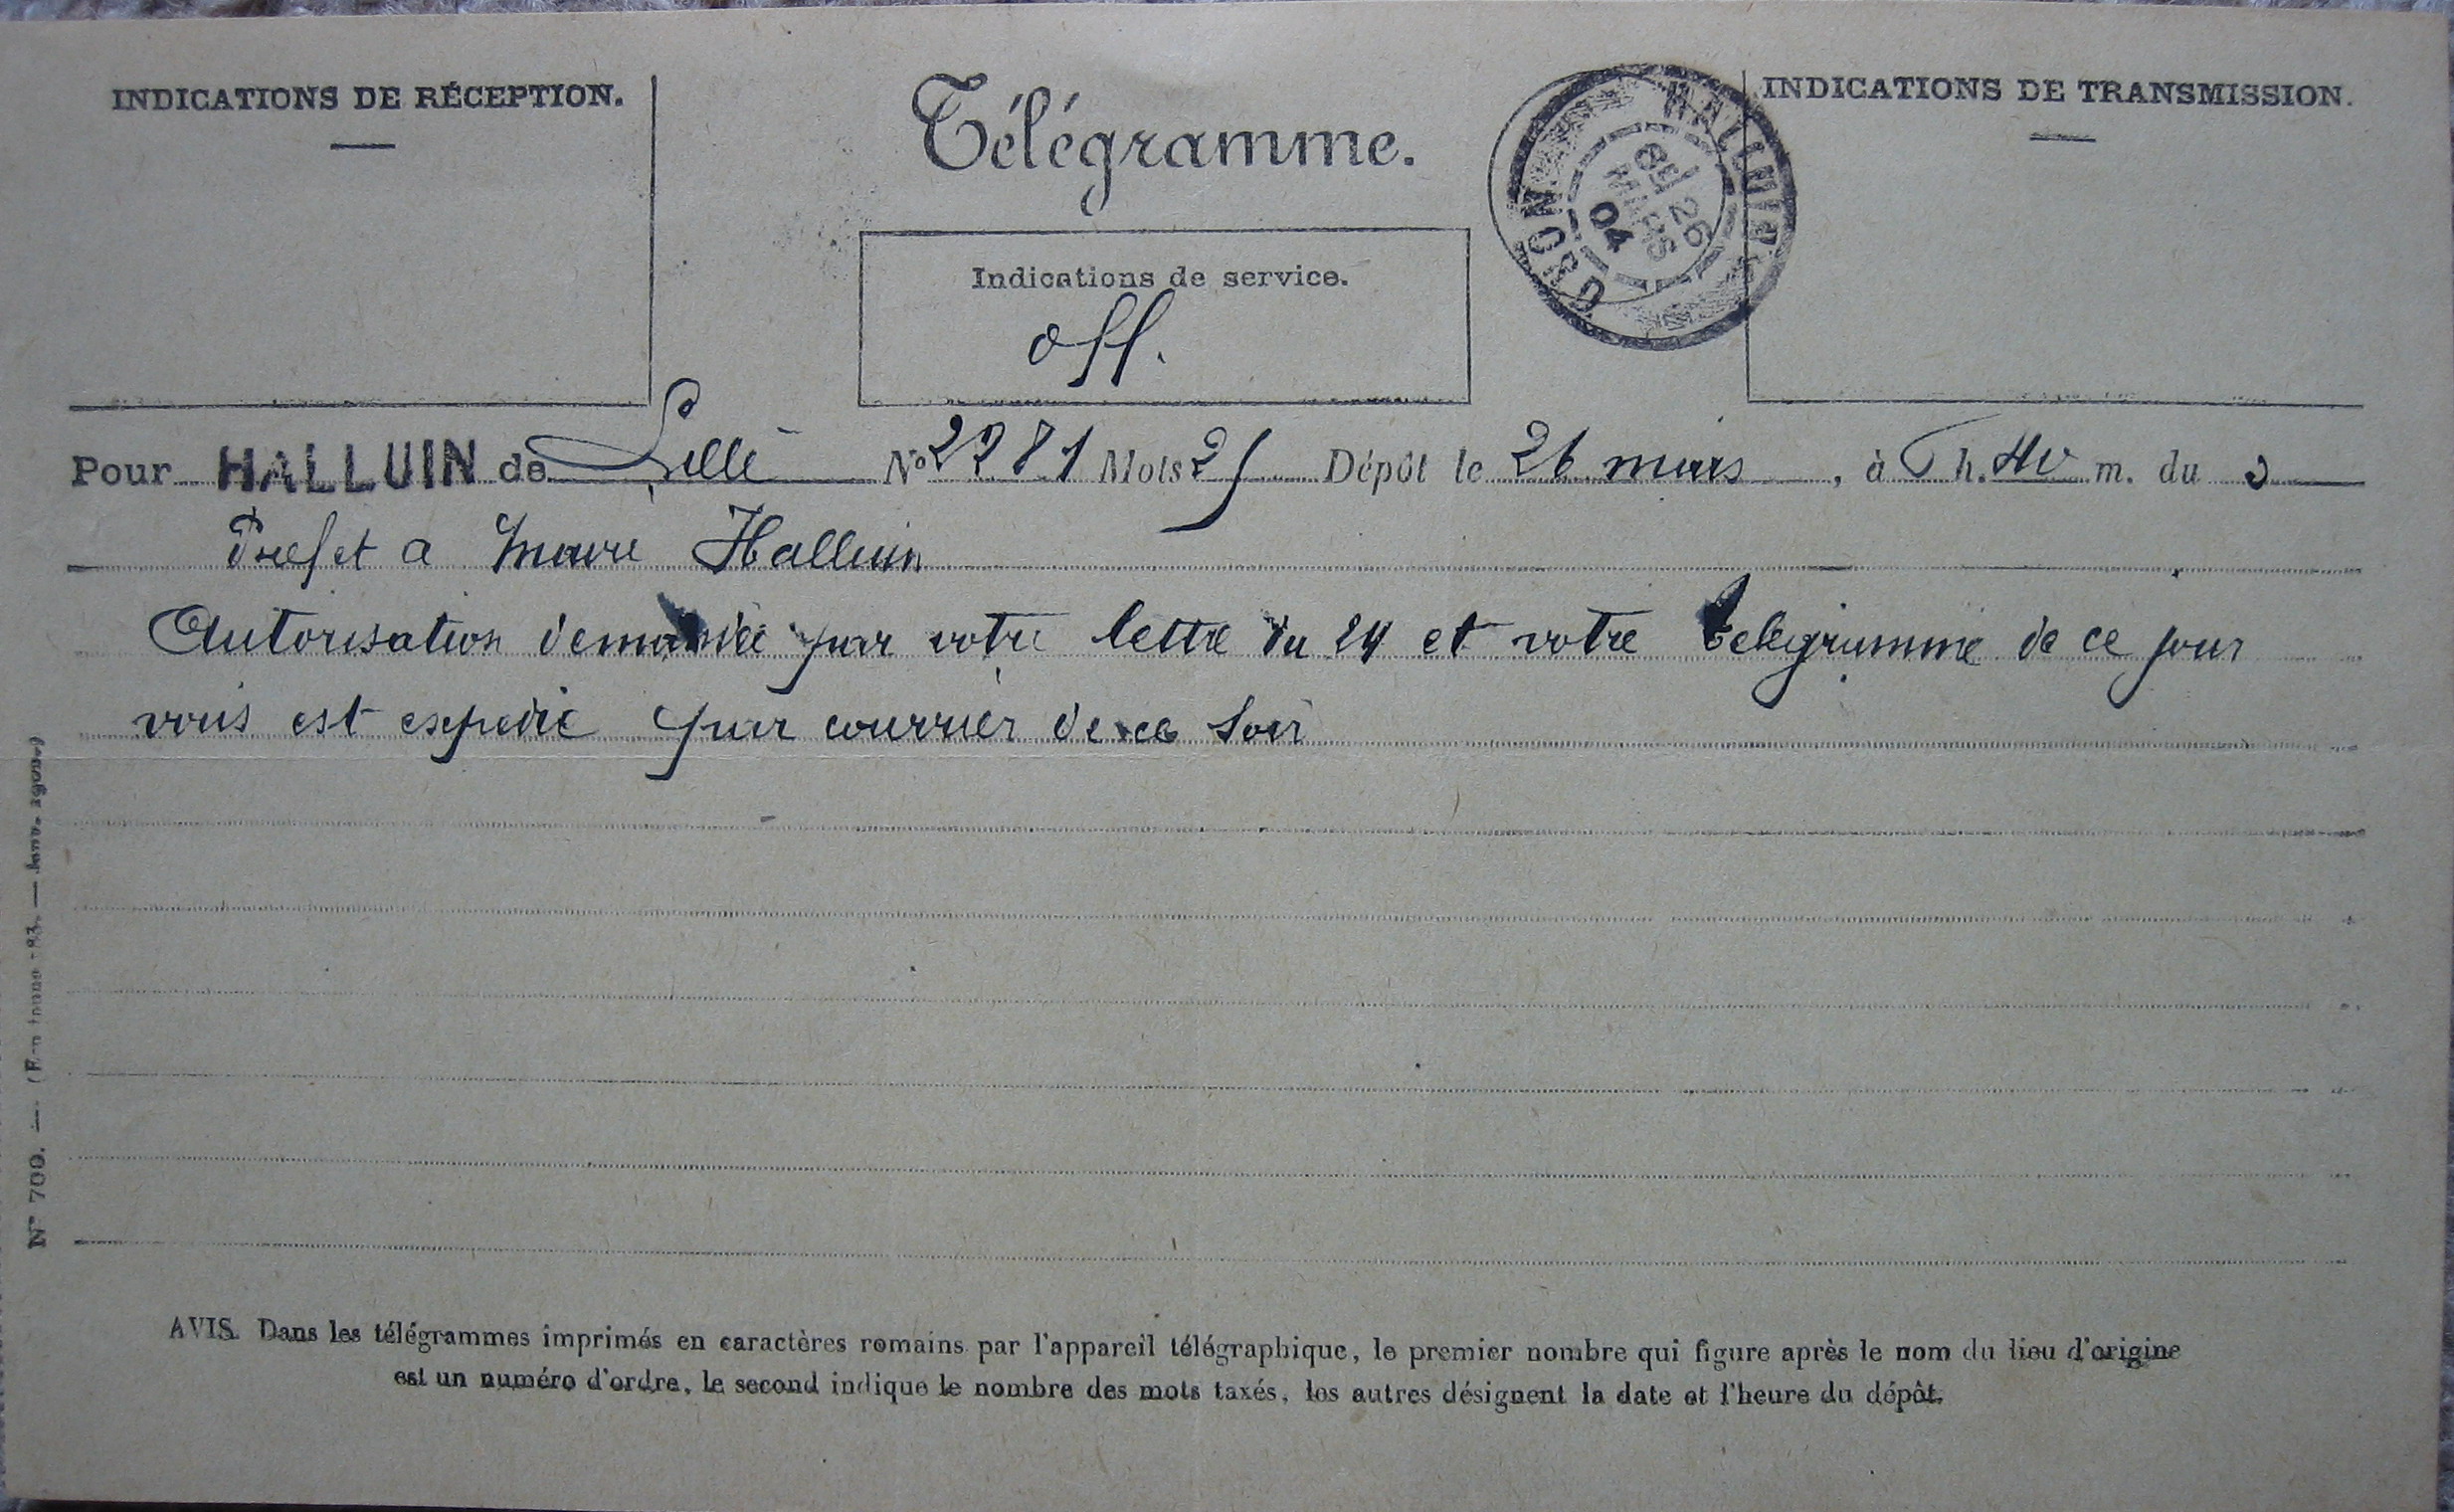 INDICATIONS DE RÉCEPTION.
Télégramme.
INDICATIONS DE TRANSMISSION.
HALLUIN
26
MARS
04
NORD
Indications de service.
off.
Pour HALLUIN de Lille No 2281 Mots 25 Dépôt le 26 mars, à h. m. du s
Prefet a Maire Halluin
Autorisation demandée par votre lettre du 24 et votre telegramme de ce jour
vous est expedie par courrier de ce soir
N° 700.
AVIS. Dans les télégrammes imprimés en caractères romains par l'appareil télégraphique, le premier nombre qui figure après le nom du lieu d'origine
est un numéro d'ordre, le second indique le nombre des mots taxés, les autres désignent la date et l'heure du dépôt.